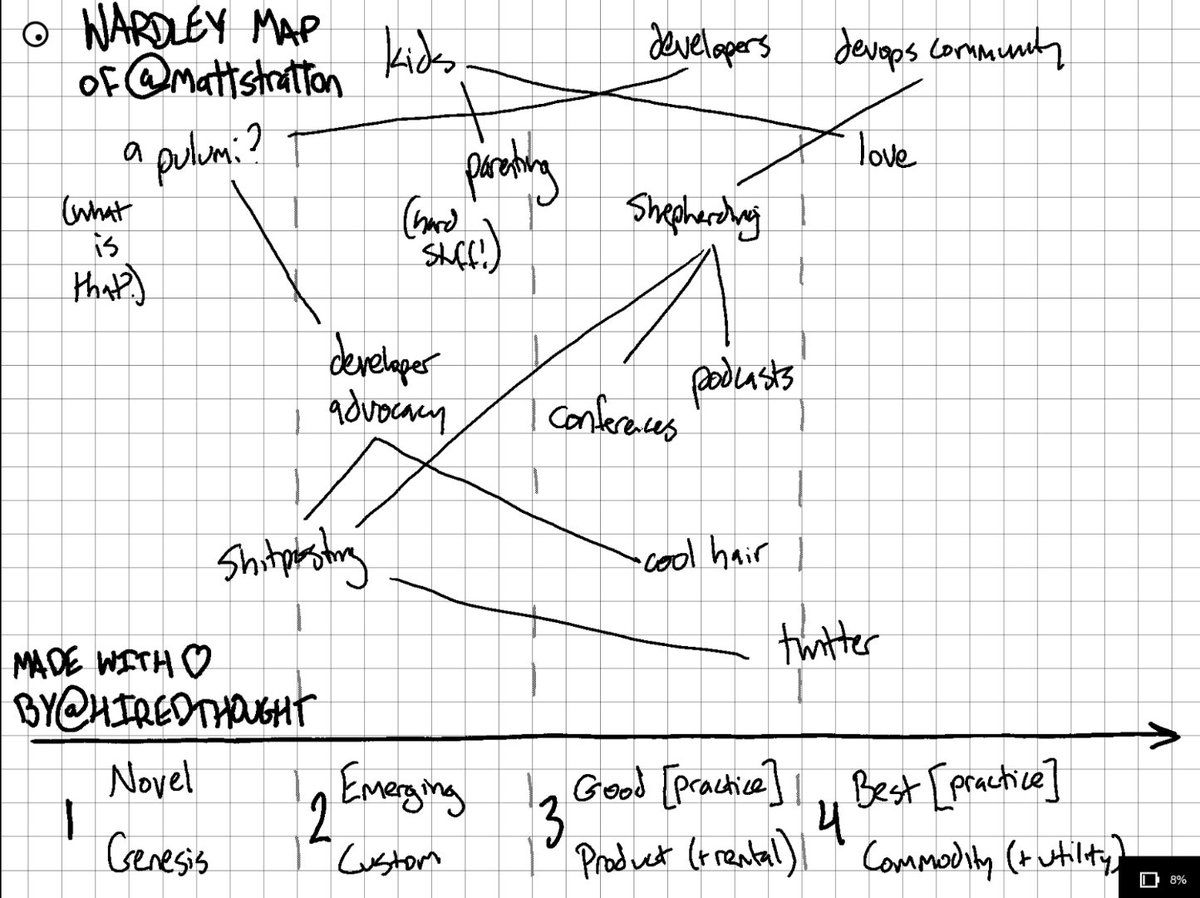 WARDLEY MAP
OF @mattstratton
kids
developers
devops community
a pulumi?
(what
is
that?)
parenting
(hard
stuff!)
love
Shepherding
developer
advocacy
conferences
podcasts
Shitposting
cool hair
twitter
MADE WITH ♡
BY@HIREDTHOUGHT
1
Novel
Genesis
2
Emerging
Custom
3
Good [practice]
Product (+rental)
4
Best [practice]
Commodity (+utility)
8%